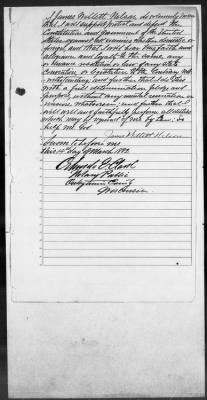 I James Willett Nelson do solemnly swear
that I will support, protect and defend the
Constitution and government of the United
States against all enemies whether domestic or
foreign, and that I will bear true faith and
allegiance and loyalty to the same, any
ordinance resolution or law of any state
Convention or Legislature to the contrary not-
withstanding, and further that I do this
with a full determination, pledge and
purpose, without any mental reservation or
evasion whatsoever; and further that I
will well and faithfully perform all duties
which may be required of me by Law. So
help me God
James Willett Nelson
Sworn to before me
this 14 day of March 1892.
Clark
Notary Public
County